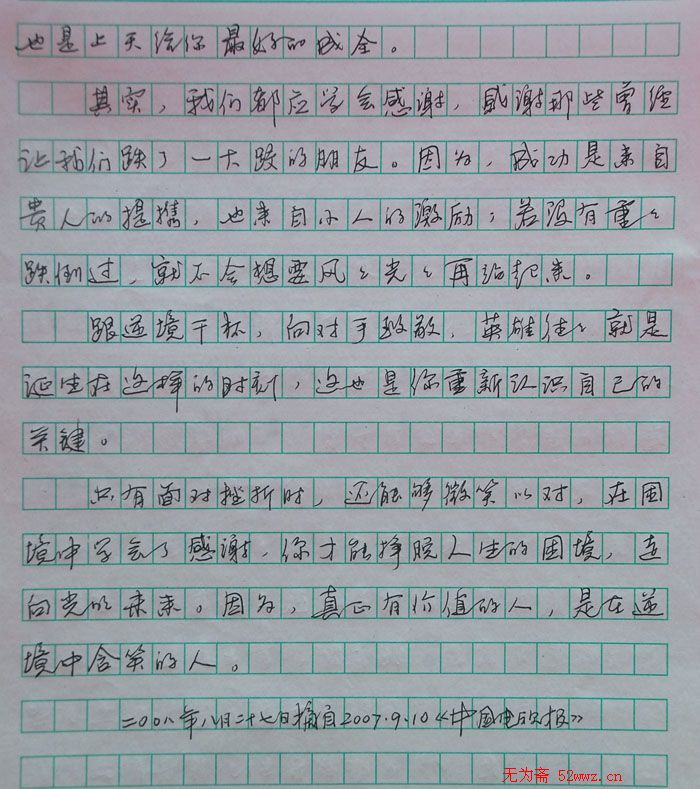 也是上天给你最好的成全。
其实，我们都应学会感谢，感谢那些曾经
让我们跌了一大跤的朋友。因为，成功是来自
贵人的提携，也来自小人的激励；若没有重々
跌倒过，就不会想要风々光々再站起来。
跟逆境干杯，向对手致敬，英雄往々就是
诞生在这样的时刻，这也是你重新认识自己的
关键。
只有面对挫折时，还能够微笑以对，在困
境中学会了感谢，你才能挣脱人生的困境，走
向光明未来。因为，真正有价值的人，是在逆
境中含笑的人。
二00八年八月二十七日摘自2007.9.10《中国电力报》
无为斋 52wwz.cn